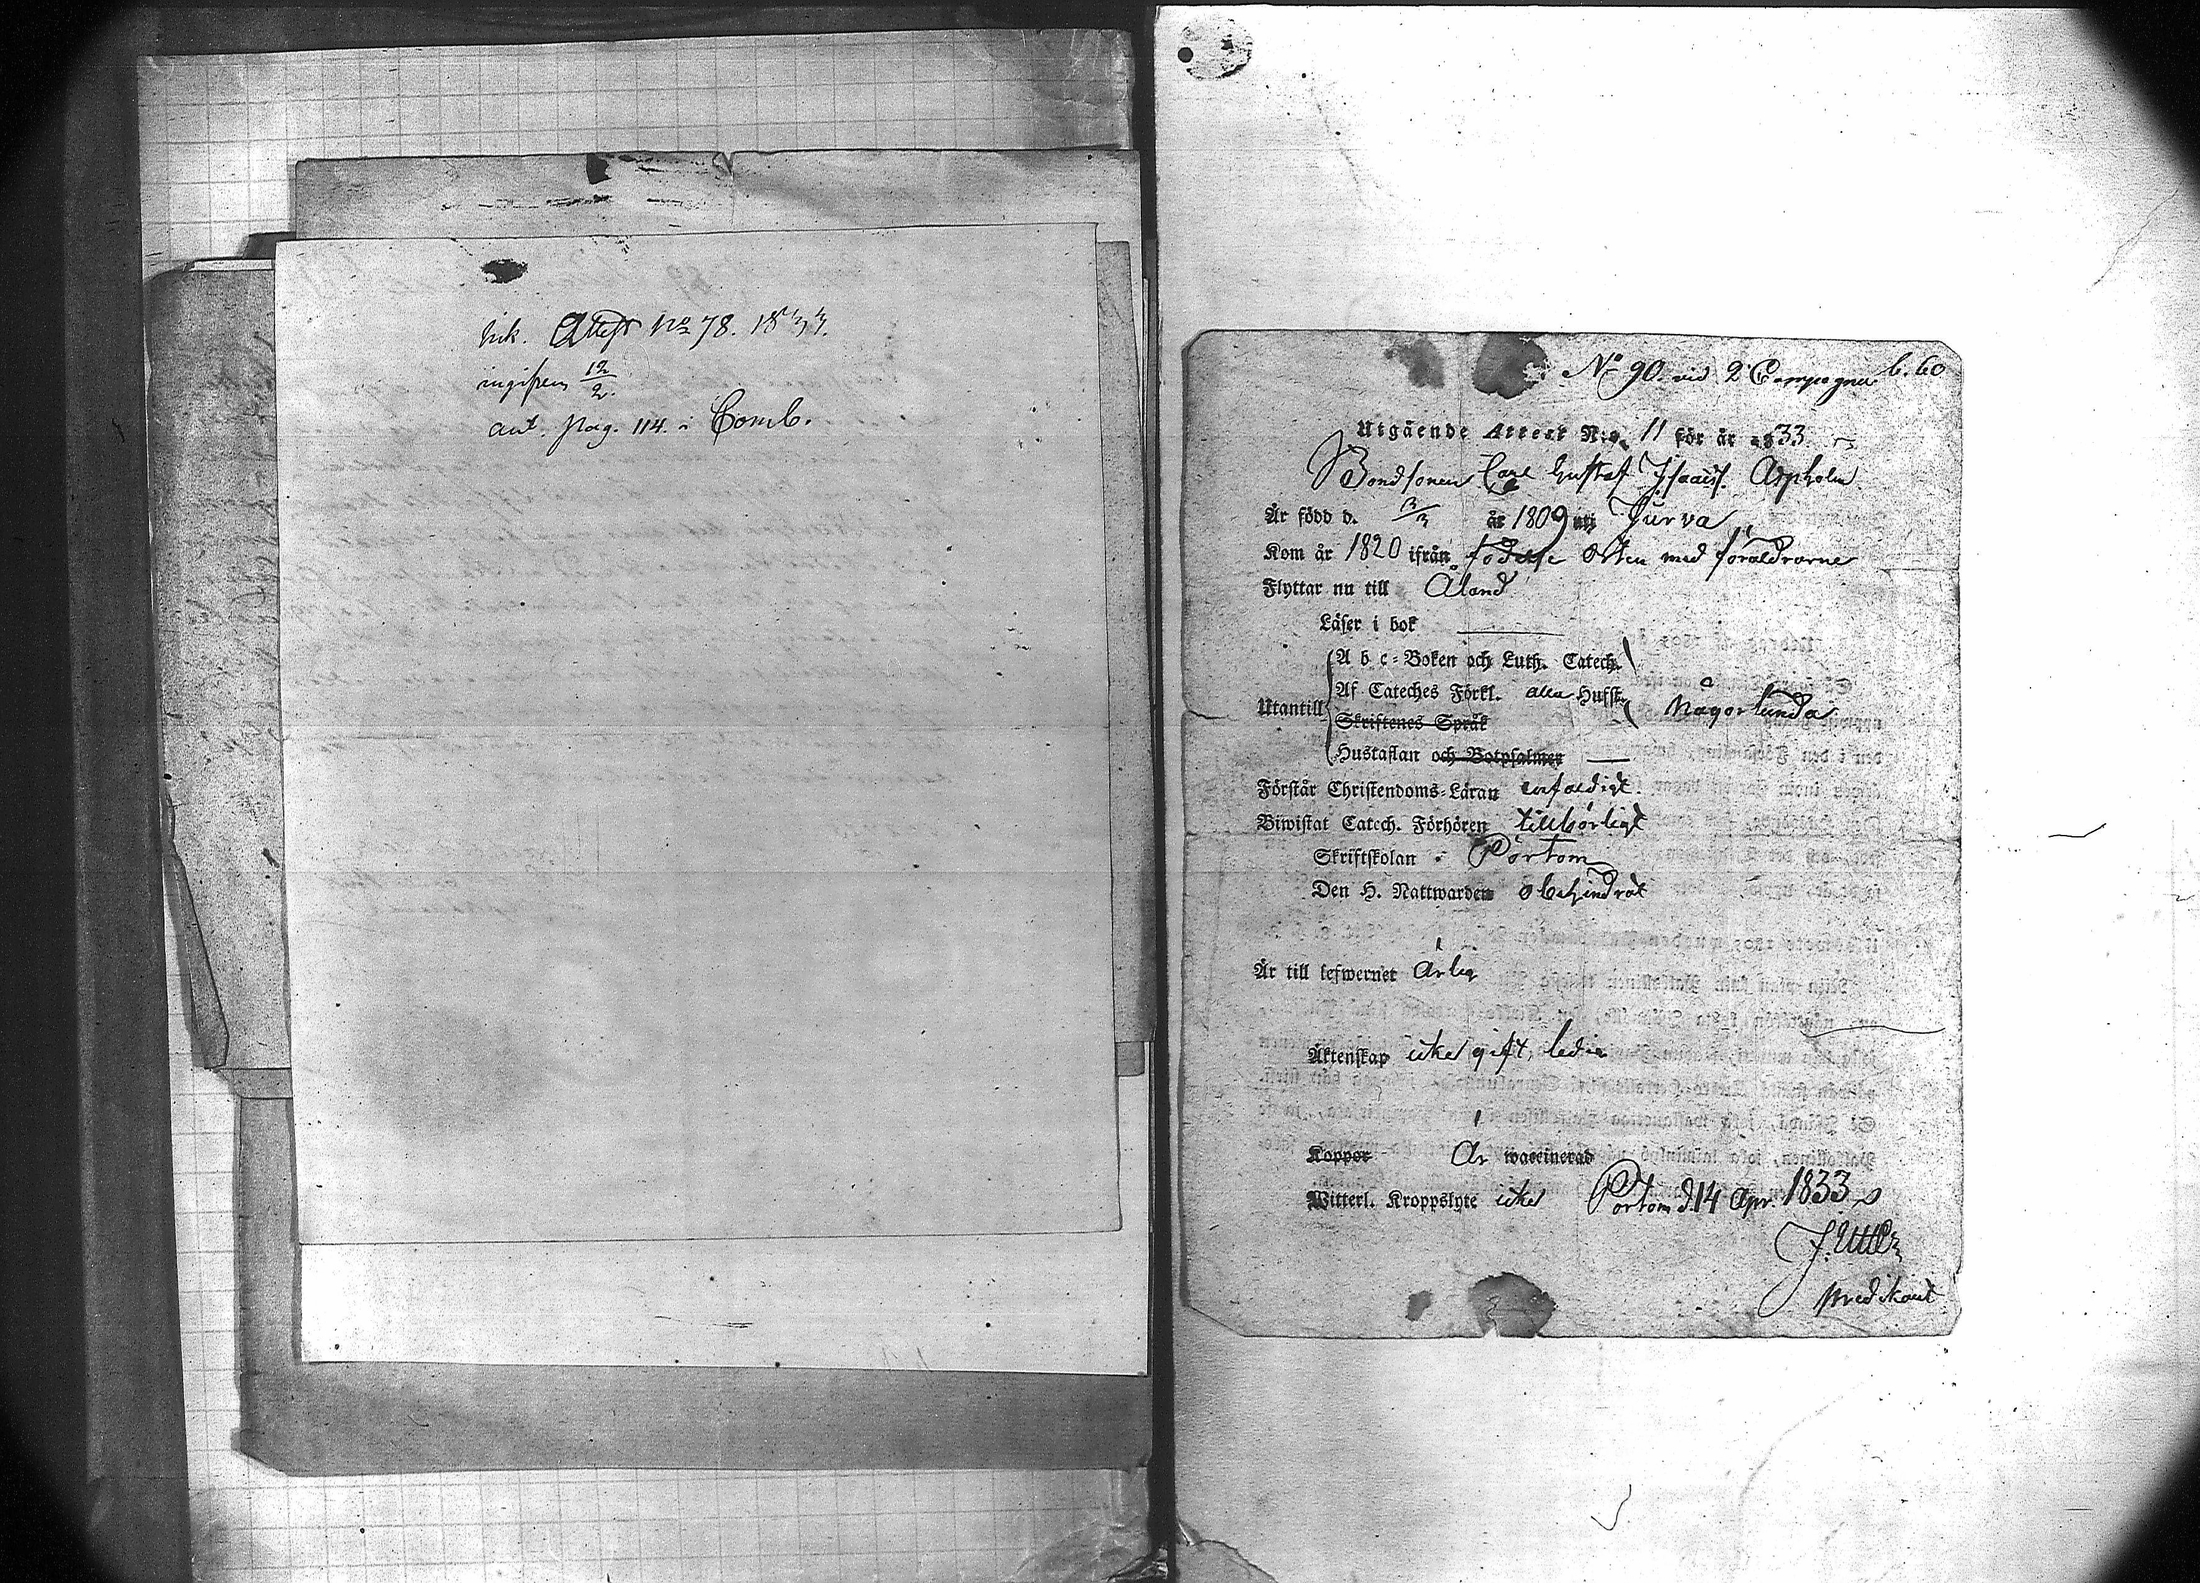 ink. Attest No 78. 1833.
ingifven 12/2.
ant. pag. 114. i Comb.
No 90. vid 2 Compagnie b. 60
Utgående Attest N:o 11 för år 1833.
Bondsonen Carl Gustaf Isaacs. Aspholm
Är född d. 3/3 år 1809 uti Jurva
Kom år 1820 ifrån födelse Orten med föräldrarne
Flyttar nu till Åland
Läser i bok
A b c-Boken och Luth. Catech.
Af Cateches Förkl. alla Hufst.
Utantill någorlunda
Skriftenes Språk
Hustaflan och Botpsalmen
Förstår Christendoms-Läran enfaldigt
Biwistat Catech. Förhören tillbörligt
Skriftskolan i Pörtom
Den H. Nattwarden obehindrat
Är till lefwernet ärlig
Äktenskap icke gift, ledig
Koppor Är waccinerad
Witterl. Kroppslyte icke Pörtom d. 14 Apr. 1833
Predikant